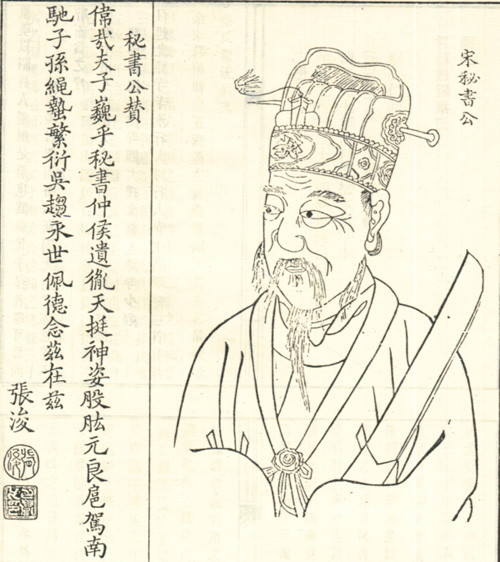 宋秘書公
秘書公贊
偉哉夫子巍乎秘書仲侯遺胤天挺神姿股肱元良扈駕南
馳子孫繩蟄繁衍吳趨永世佩德念茲在茲
張浚